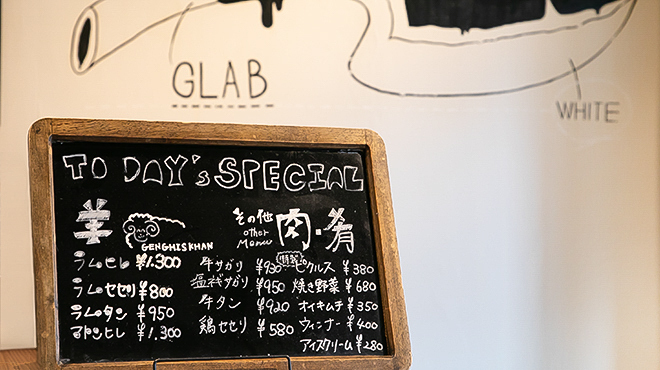 GLAB
WHITE
TO DAY's SPECIAL
羊 GENGHISKHAN
ラムヒレ ¥1.300
ラムセセリ ¥800
ラムタン ¥950
マトンヒレ ¥1.300
その他 other Menu 肉・肴
牛サガリ ¥930
塩ネギサガリ ¥950
牛タン ¥920
鶏セセリ ¥580
特製 ピクルス ¥380
焼き野菜 ¥680
オイキムチ ¥350
ウィンナー ¥400
アイスクリーム ¥280